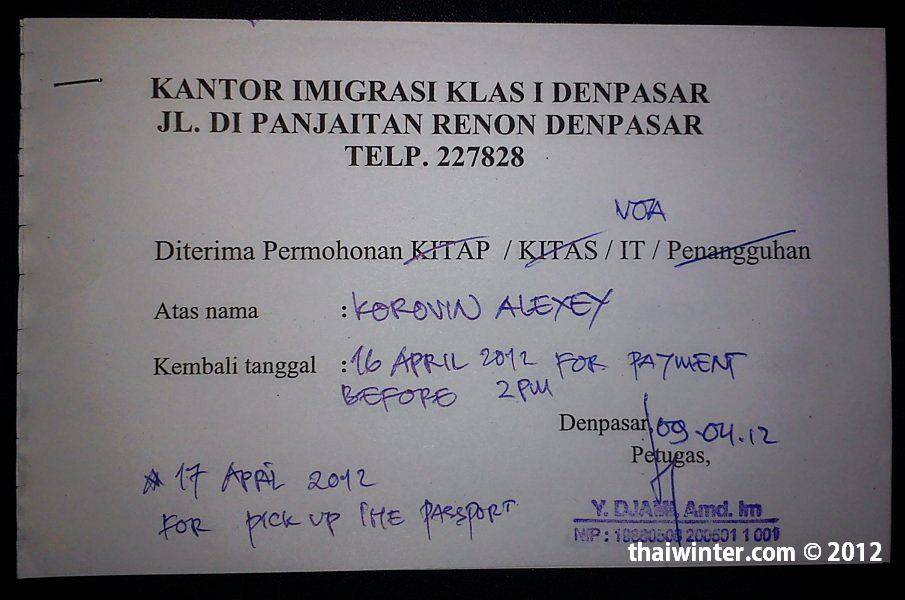 KANTOR IMIGRASI KLAS I DENPASAR
JL. DI PANJAITAN RENON DENPASAR
TELP. 227828
VOA
Diterima Permohonan KITAP / KITAS / IT / Penangguhan
Atas nama : KOROVIN ALEXEY
Kembali tanggal : 16 APRIL 2012 FOR PAYMENT
BEFORE 2PM
Denpasar, 09.04.12
Petugas,
* 17 APRIL 2012
FOR PICK UP THE PASSPORT
Y. DJAMI, Amd. Im
NIP : 200501 1 001
thaiwinter.com © 2012